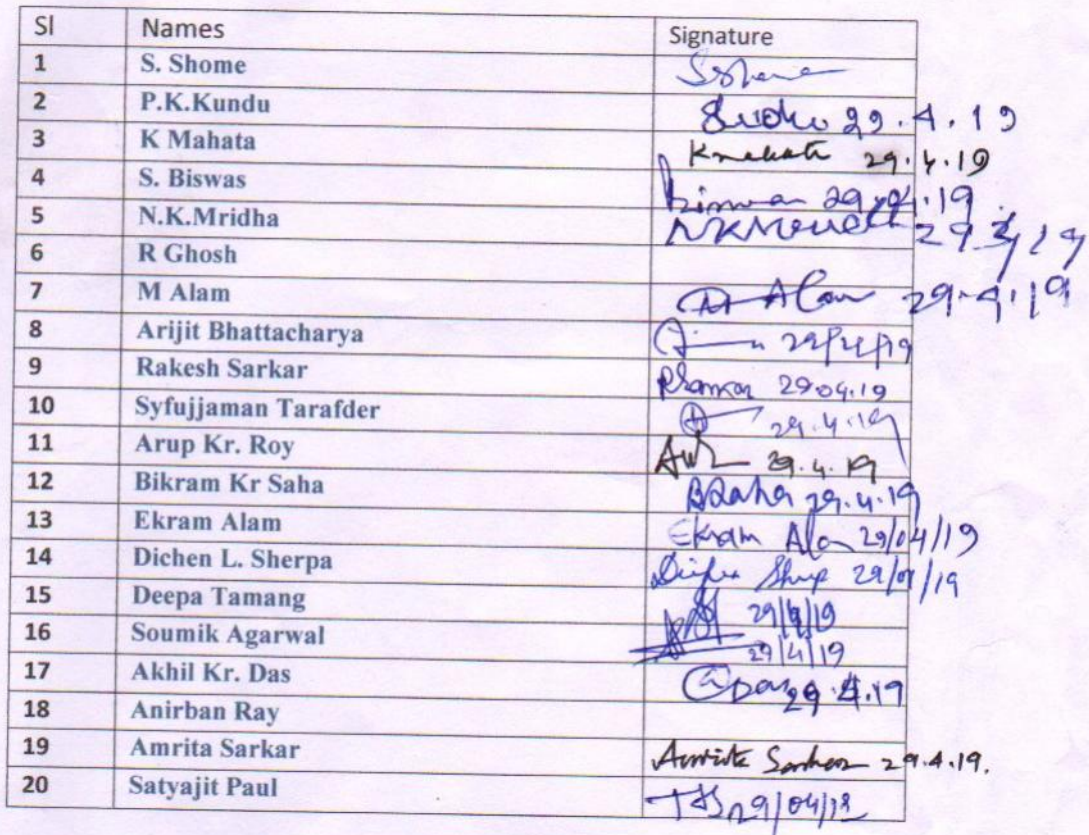 Sl Names Signature
1 S. Shome
2 P.K.Kundu 29.4.19
3 K Mahata Kmahata 29.4.19
4 S. Biswas Biswas 29.04.19
5 N.K.Mridha 29/4/19
6 R Ghosh
7 M Alam M Alam 29.4.19
8 Arijit Bhattacharya 29/04/19
9 Rakesh Sarkar RSarkar 29.04.19
10 Syfujjaman Tarafder 29.4.19
11 Arup Kr. Roy 29.4.19
12 Bikram Kr Saha BSaha 29.4.19
13 Ekram Alam Ekram Alam 29/04/19
14 Dichen L. Sherpa 29/04/19
15 Deepa Tamang 29/4/19
16 Soumik Agarwal 29/4/19
17 Akhil Kr. Das Das 29.4.19
18 Anirban Ray
19 Amrita Sarkar Amrita Sarkar 29.4.19.
20 Satyajit Paul 29/04/19